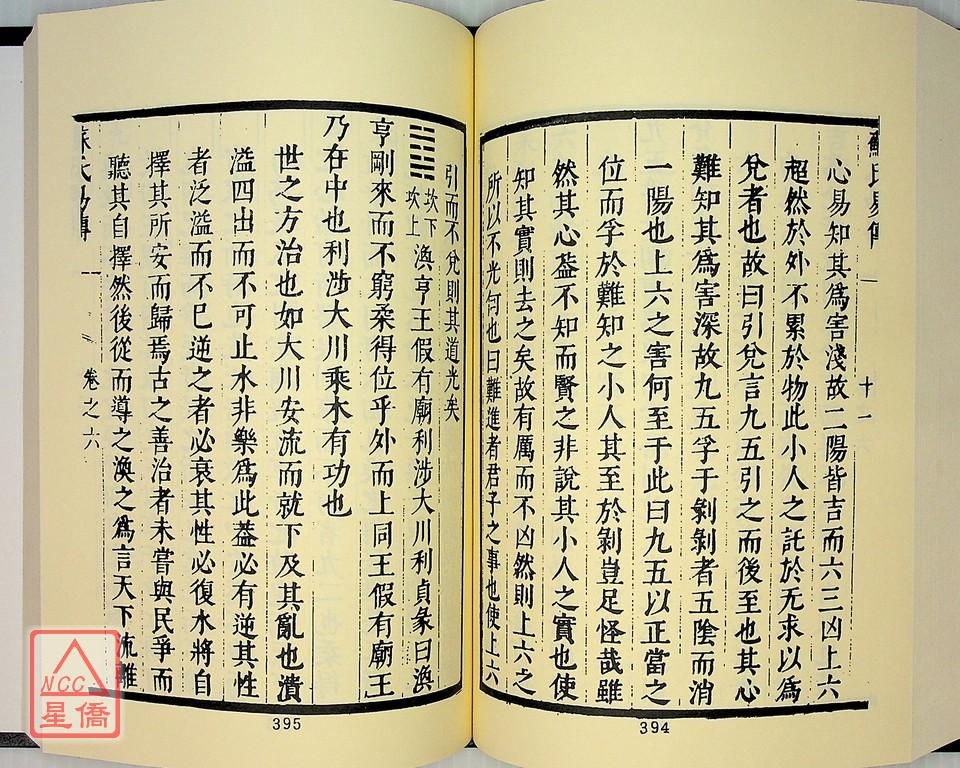 蘇氏易傳 十一
心易知其為害淺故二陽皆吉而六三凶上六
超然於外不累於物此小人之託於无求以為
兌者也故曰引兌言九五引之而後至也其心
難知其為害深故九五孚于剝剝者五陰而消
一陽也上六之害何至于此曰九五以正當之
位而孚於難知之小人其至於剝豈足怪哉雖
然其心葢不知而賢之非說其小人之實也使
知其實則去之矣故有厲而不凶然則上六之
所以不光何也曰難進者君子之事也使上六
394
引而不兌則其道光矣
䷺坎下坎上渙亨王假有廟利涉大川利貞彖曰渙
亨剛來而不窮柔得位乎外而上同王假有廟王
乃在中也利涉大川乘木有功也
世之方治也如大川安流而就下及其亂也潰
溢四出而不可止水非樂為此葢必有逆其性
者泛溢而不已逆之者必衰其性必復水將自
擇其所安而歸焉古之善治者未嘗與民爭而
聽其自擇然後從而導之渙之為言天下流離
蘇氏易傳 卷之六
395
NCC
星僑